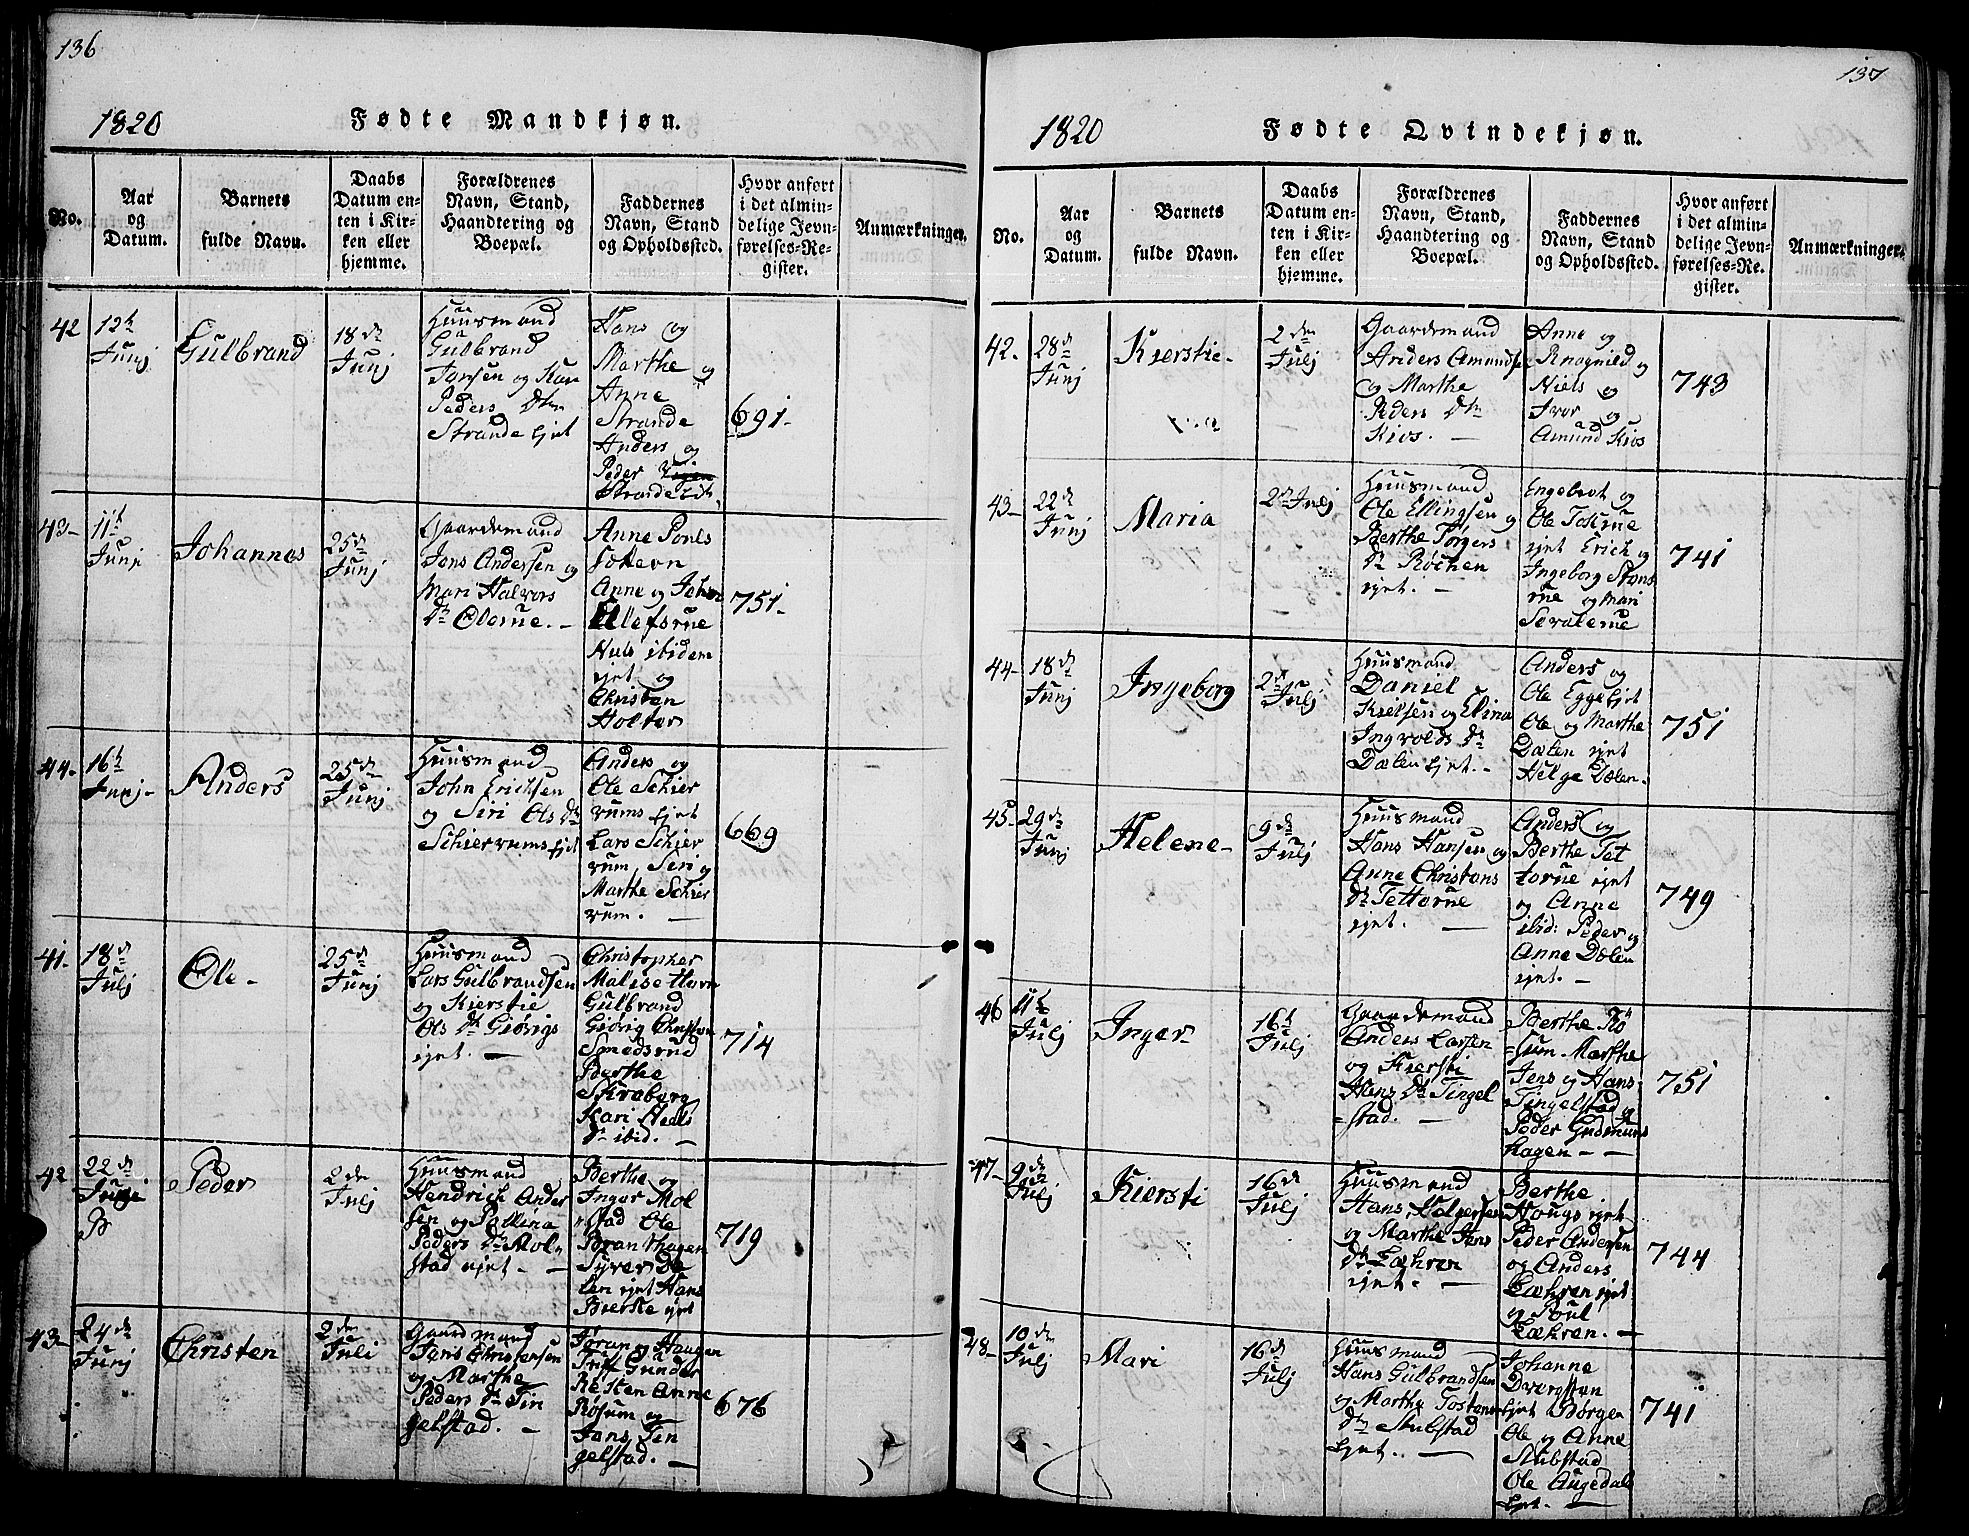 136
1820
Fødte Mandkjøn.
No.
Aar
og
Datum.
Barnets
fulde Navn.
Daabs
Datum en-
ten i Kir-
ken eller
hjemme.
Forældrenes
Navn, Stand,
Haandtering og
Boepæl.
Faddernes
Navn, Stand
og Opholdssted.
Hvor anført
i det almin-
delige Jevn-
førelses-Re-
gister.
Anmærkninger.
42
12te
Junj
Gulbrand
18de
Junj
Huusmand
Gulbrand
Jansen og Kari
Peders Dtr
Strande Ejet
Hans og
Marthe og
Anne
Strande
Anders og
Peder
Strande
691.
43-
11te
Junj
Johannes
25de
Junj
Gaardemand
Jens Andersen og
Mari Halvors
Dr Olerne. -
Anne Povls
Anne og Johan
Ellefsrue
Niels ibidem
ejet og
Christen
Holter
751-
44-
16te
Junj-
Anders
25de
Junj
Huusmand
John Erichsen
og Siri Ols Dr
Schierrums Ejet
Anders og
Ole Schier
rums Ejet
Lars Schier
rum, Siri og
Marthe Schier
rum. -
669
41-
18de
Julj
Ole-
25de
Junj
Huusmand
Lars Gulbrandsen
og Kierstie
Ols Dr Giørigs
ejet. -
Christopher
Gulbrand
Giørig Christen
Smedsrud
Berthe
Skraberg
Kari Niels
Dr ibid. -
714
42
22de
Junj
B
Peder
2den
Julj
Huusmand
Hendrich Ander
sen og Pallina
Peders Dr Mol-
stad ejet. -
Berthe og
Inger Mol
stad Ole
Branthagen
Syver Dæ
len ejet Hans
Bierke ejet
719
43-
24de
Junj
Christen
2den
Juli
Gaardmand
Jens Christensen
og Marthe
Peders Dr Tin
gelstad. -
Jøran og Haagen
Resten Anne
Røsum og
Jans Tin
gelstad. -
676
137
1820
Fødte Qvindekjøn.
No.
Aar
og
Datum.
Barnets
fulde Navn.
Daabs
Datum en-
ten i Kir-
ken eller
hjemme.
Forældrenes
Navn, Stand,
Haandtering og
Boepæl.
Faddernes
Navn, Stand
og Opholdssted.
Hvor anført
i det almin-
delige Jevn-
førelses-Re-
gister.
Anmærkninger.
42-
28de
Junj
Kierstie-
2den
Julj
Gaardemand
Anders Amundse
og Marthe
Peders Dtr
Kios. -
Anne og
Rnognild og
Niels og
Iver og
Amund Kios
743
43-
22de
Junj
Maria
2de Julj
Huusmand
Ole Ellingsen og
Berthe Torgers
Dr Røchen
ejet. -
Engebret og
Ole
ejet Erich og
Ingeborg Stens
rue og Mari
741
44-
18de
Junj
Ingeborg
2de
Julj
Huusmand
Daniel
Kielsen og Elina
Ingvolds Dr
Dælen Ejet. -
Anders og
Ole Egge Ejet
Ole og Marthe
Dælen ejet
Helge Dælen-
751
45-
29de
Junj
Helene-
9de
Julj
Huusmand
Hans Hansen og
Anne Christens
Dr Tettorne
ejet. -
Anders og
Berthe Tet
torne ejet
og Anne
ibid: Peder og
Anne Dælen
ejet. -
749
46
11te
Julj
Inger
16de
Julj
Gaardemand
Anders Larsen
og Kiersti
Hans Dr Tingel
=stad. -
Berthe Rö
=sum Marthe
Jens og Hans
Tingelstad og
Peder Gudmuns
hagen - -
751
47-
9de
Julj
Kiersti
16de
Julj
Huusmand
Hans Holgersen
og Marthe Jens
Dr Læhren
ejet. -
Berthe
Hougs ejet
Peder Andersen
og Anders
Læhren ejet
og Poul
Læhren. -
744
48-
10de
Julj
Mari
16de
Julj
Huusmand
Hans Gulbrandsen
og Marthe Tostens
Dr Stubstad
Ejet. -
Johanne
Dvergsten
Ejet Børger
Ole og Anne
Stubstad
Ole Augedals
Ejet. -
741